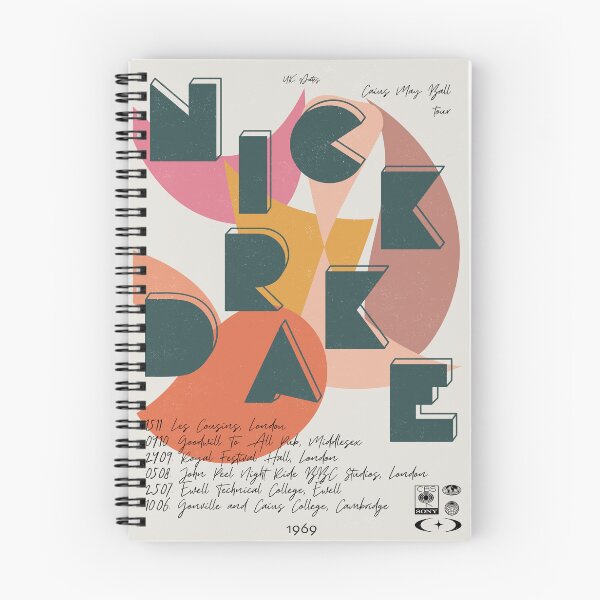 UK Dates
Caius May Ball
tour
NICK
DRAKE
15.11. Les Cousins, London
09.10. Goodwill To All Pub, Middlesex
24.09. Royal Festival Hall, London
05.08. John Peel Night Ride BBC Studios, London
25.07. Ewell Technical College, Ewell
10.06. Gonville and Caius College, Cambridge
1969
CBS
SONY